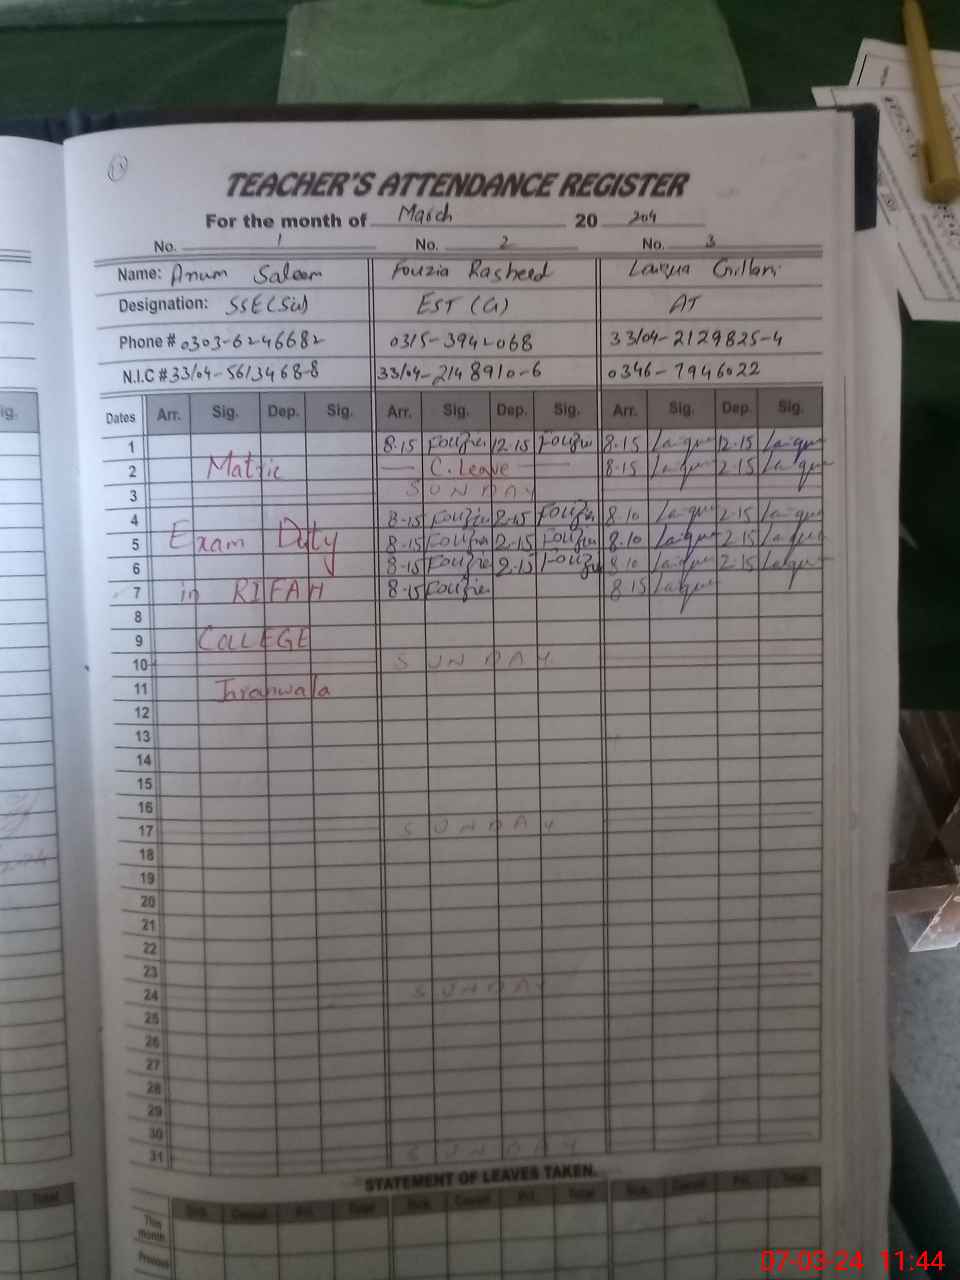 13
TEACHER'S ATTENDANCE REGISTER
For the month of March 20 204
No. 1 No. 2 No. 3
Name: Anum Saleem Fouzia Rasheed Laiqua Gillani
Designation: SSE(Sci) EST (G) AT
Phone # 0303-6246682 0315-3942068 33104-2129825-4
N.I.C # 33104-5613468-8 33104-2148910-6 0346-7946022
Dates Arr. Sig. Dep. Sig. Arr. Sig. Dep. Sig. Arr. Sig. Dep. Sig.
1 8-15 Fouzia 12.15 Fouzia 8.15 Laiqua 12.15 Laiqua
2 Matric C. Leave 8.15 Laiqua 2.15 Laiqua
3 SUNDAY
4 8-15 Fouzia 2.15 Fouzia 8.10 Laiqua 2.15 Laiqua
5 Exam Duty 8-15 Fouzia 2.15 Fouzia 8.10 Laiqua 2.15 Laiqua
6 8-15 Fouzia 2.15 Fouzia 8.10 Laiqua 2.15 Laiqua
7 in RIFAH 8-15 Fouzia 8.15 Laiqua
8
9 COLLEGE
10 SUNDAY
11 Jranwala
12
13
14
15
16
17 SUNDAY
18
19
20
21
22
23
24 SUNDAY
25
26
27
28
29
30
31 SUNDAY
STATEMENT OF LEAVES TAKEN.
Sick. Casual Pri. Total Sick. Casual Pri. Total Sick. Casual Pri. Total
This month
Previous
ig.
Total
07-03-24 11:44